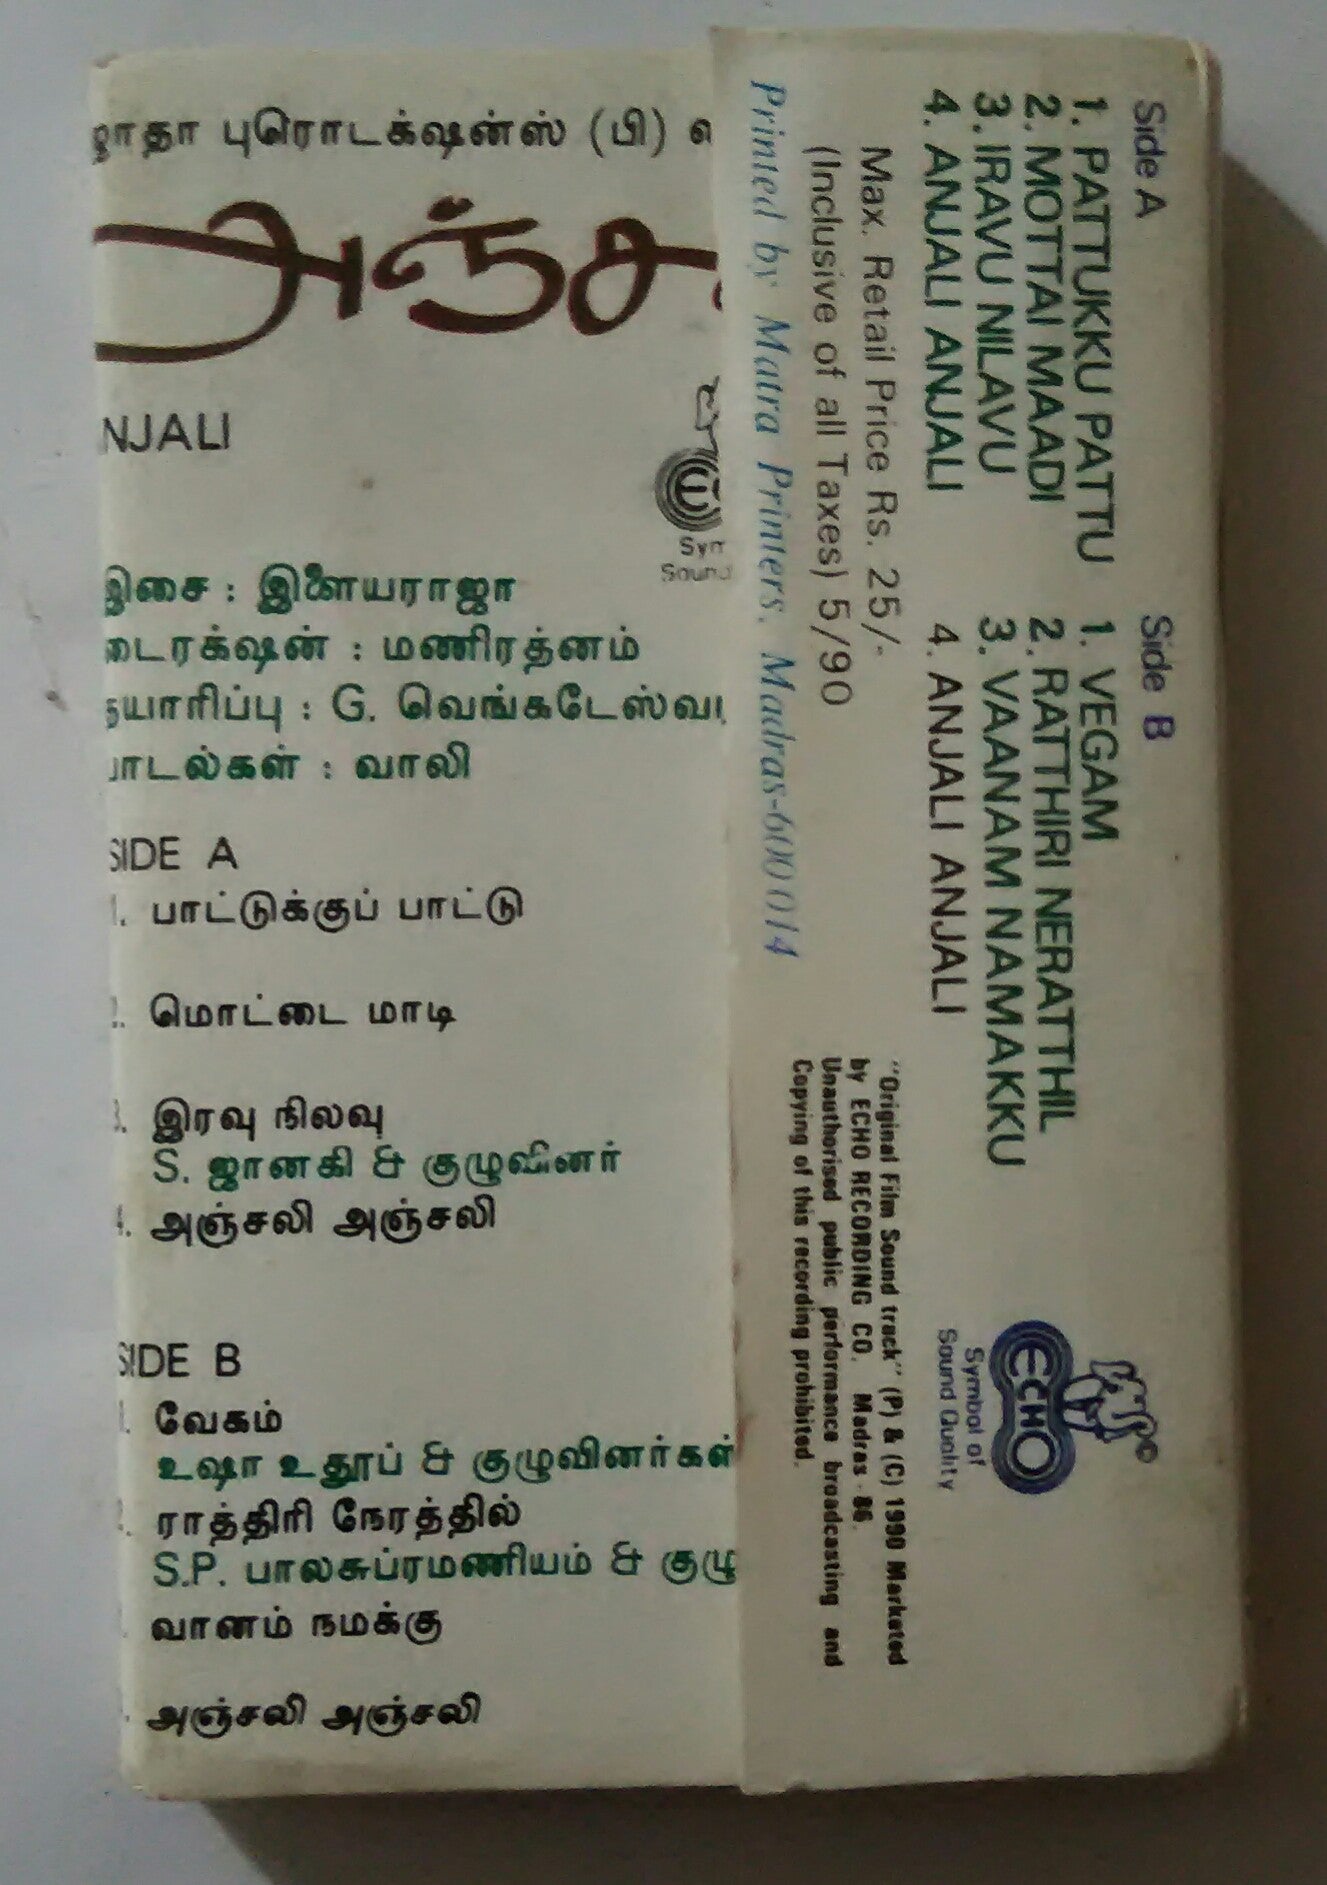 புரொடக்ஷன்ஸ் (பி)
NJALI
Sound
இசை : இளையராஜா
டைரக்ஷன் : மணிரத்னம்
தயாரிப்பு : G.
பாடல்கள் : வாலி
SIDE A
1. பாட்டுக்குப் பாட்டு
2. மொட்டை மாடி
3. இரவு நிலவு
S. ஜானகி & குழுவினர்
4. அஞ்சலி அஞ்சலி
SIDE B
1. வேகம்
உஷா உதூப் & குழுவினர்கள்
2. ராத்திரி நேரத்தில்
S.P. பாலசுப்ரமணியம் &
வானம் நமக்கு
அஞ்சலி அஞ்சலி
Side A
1. PATTUKKU PATTU
2. MOTTAI MAADI
3. IRAVU NILAVU
4. ANJALI ANJALI
Side B
1. VEGAM
2. RATTHIRI NERATTHIL
3. VAANAM NAMAKKU
4. ANJALI ANJALI
Max. Retail Price Rs. 25/-
(Inclusive of all Taxes) 5/90
Printed by Matra Printers. Madras-600 014
"Original Film Sound track" (P) & (C) 1990 Marketed
by ECHO RECORDING CO. Madras - 86.
Unauthorised public performance broadcasting and
Copying of this recording prohibited.
ECHO
Symbol of
Sound Quality